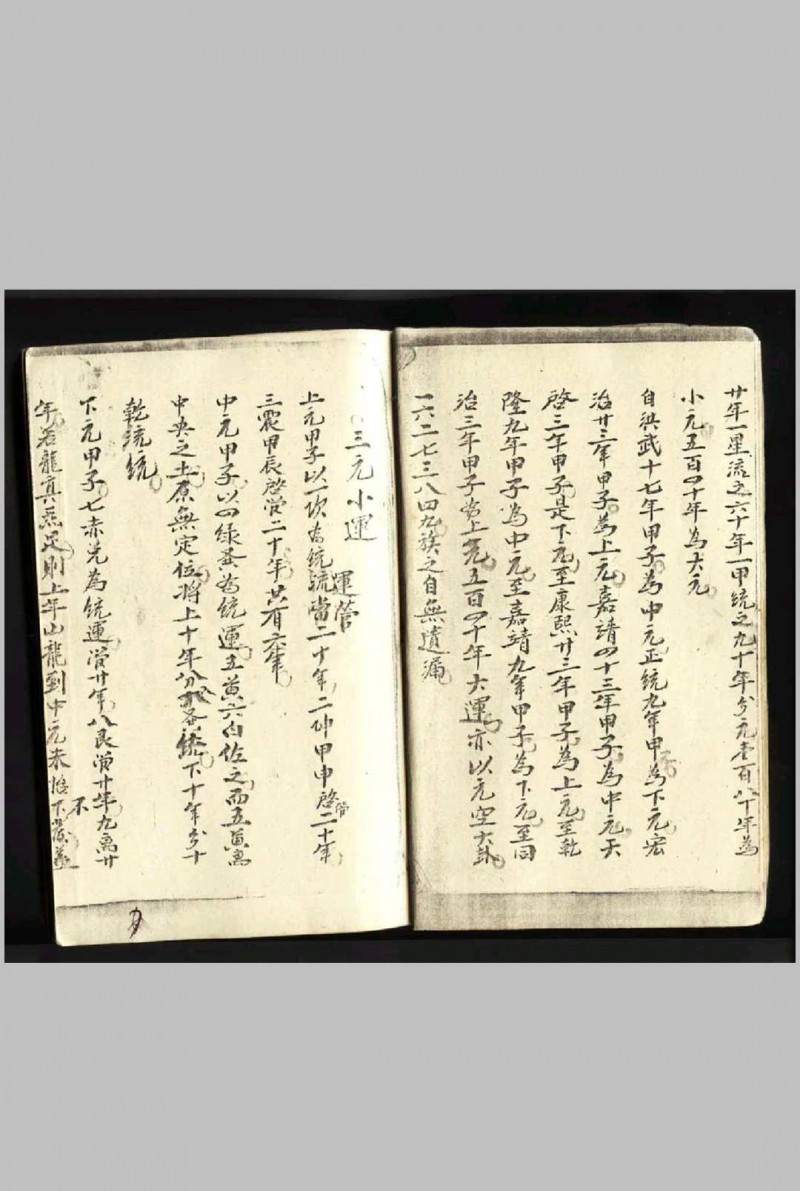 廿年一星流之六十年一甲統之九十年分元壹百八十年為
小元五百四十年為大元
自洪武十七年甲子為中元正統九年甲為下元宏
治廿三年甲子為上元嘉靖四十三年甲子為中元天
啓三年甲子是下元至康熙廿三年甲子為上元至乾
隆九年甲子為中元至嘉靖九年甲子為下元至同
治三年甲子為上元五百四十年大運亦以元空大卦
一六二七三八四九族之自無遺漏
三元小運
運管
上元甲子以一坎為統二十年二坤甲申啓管二十年
三震甲辰啓管二十年共有六年
中元甲子以四綠為統運五黃六白佐之而五黃為
中央之土原無定位將上十年分下十年分十
乾統統
下元甲子七赤兌為統運管廿年八艮管廿年九离廿
年若龍真炁足則上年山龍到中元未下不